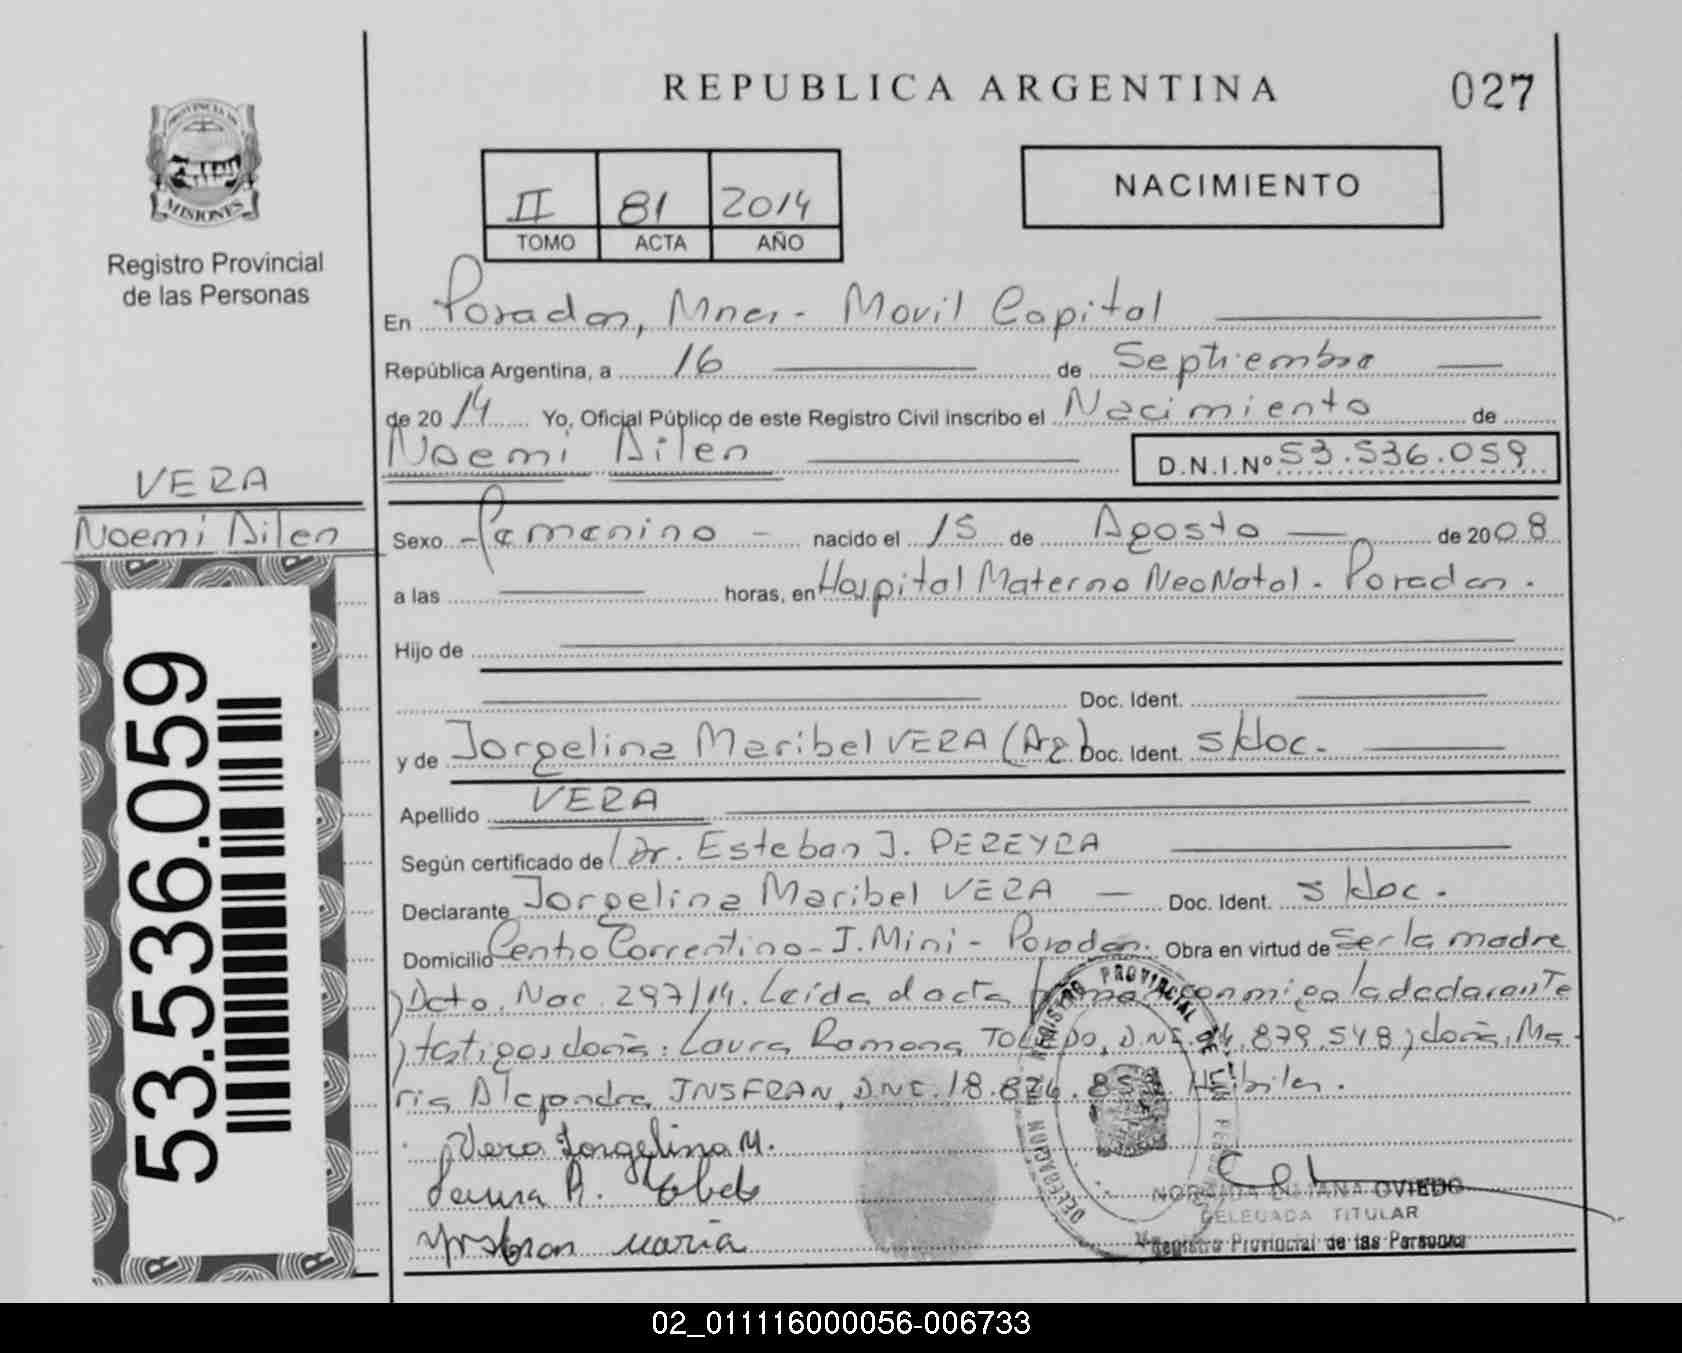 REPUBLICA ARGENTINA
027
PROVINCIA DE
MISIONES
Registro Provincial
de las Personas
II 81 2014
TOMO ACTA AÑO
NACIMIENTO
En Posadas, Mnes- Movil Capital
República Argentina, a 16 de Septiembre
de 2014 Yo, Oficial Público de este Registro Civil inscribo el Nacimiento de
Noemi Ailen D.N.I.Nº 53.536.059
VERA
Noemi Ailen
53.536.059
Sexo - Femenino - nacido el 15 de Agosto de 2008
a las horas, en Hospital Materno NeoNatal. Posadas.
Hijo de
Doc. Ident.
y de Jorgelina Maribel VERA (Arg) Doc. Ident. s/doc.
Apellido VERA
Según certificado de Dr. Esteban J. PEREYRA
Declarante Jorgelina Maribel VERA - Doc. Ident. s/doc.
Domicilio Centro Correntino - I. Mini - Posadas. Obra en virtud de Ser la madre
Dcto. Nac. 297/14. Leída el acta conmigo la declarante
testigos doña: Laura Ramona TOLEDO, D.N.I. 879.548; doña, Ma-
ria Alejandra INSFRAN, DNI. 18.826.85 Hábiles.
Vera Jorgelina M.
Laura R.
Insfran Maria
REGISTRO PROVINCIAL DE LAS
DELEGACION
NORMA LILIANA OVIEDO
DELEGADA TITULAR
Registro Provincial de las Personas
02_011116000056-006733